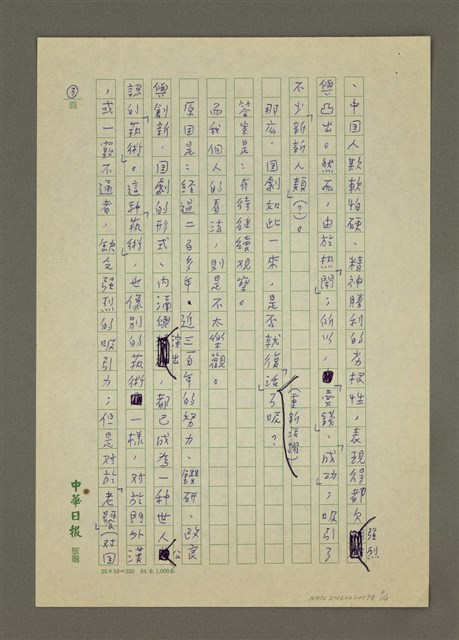 、中国人欺軟怕硬、精神勝利的劣根性，表現得都欠強烈
與凸出。然而，由於「熱鬧」；所以，「賣錢」、「成功」；吸引了
不少「新新人類」（？）。
那麼，国劇如此一來，是否就「復活」了呢？（重新活躍）
答案是：有待繼續观察。
而我個人的看法，則是不太樂觀。
原因是：經過二百多年、近三百年的努力、鑽研、改良
與創新，国劇的形式、內涵與演出，都已成為一種世人公
認的「藝術」。這种「藝術」，也像別的藝術一樣，對於門外漢
，或一竅不通者，缺乏強烈的吸引力；但是對於「老饕」（对国
③頁
中華日報
25×10＝250 84. 6. 1,000本